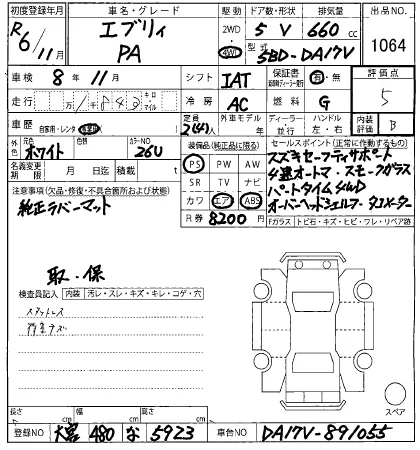 初度登録年月 車名・グレード 駆動 ドア数・形状 排気量 出品NO.
R6/11月 エブリィ PA 2WD 4WD 5 V 660cc 1064
型式 5BD-DA17V
車検 8年11月 シフト IAT 保証書 有・無 評価点
走行 キロ マイル 冷房 AC 燃料 G 5
車歴 自家用・レンタ 定員 2(4)人 外車モデル 年 ディーラー・並行 ハンドル 左・右 内装評価 B
外色 元色 ホワイト 色替 カラーNO 26U 装備品(純正品に限る) セールスポイント(正常に作動するもの)
名義変更期限 月 日迄 積載 t PS PW AW スズキセーフティサポート
注意事項(欠品・修復・不具合箇所および状態) SR TV ナビ 4速オートマ・スモークガラス
純正ラバーマット カワ エア ABS パートタイム4WD
R券 8200円 オーバーヘッドシェルフ・タコメーター
Fガラス トビ石・キズ・ヒビ・ワレ・リペア跡
取・保
検査員記入 内装 汚レ・スレ・キズ・キレ・コゲ・穴
長さ cm 幅 cm 高さ cm スペア
登録NO 大宮 480 な 5923 車台NO DA17V-891055